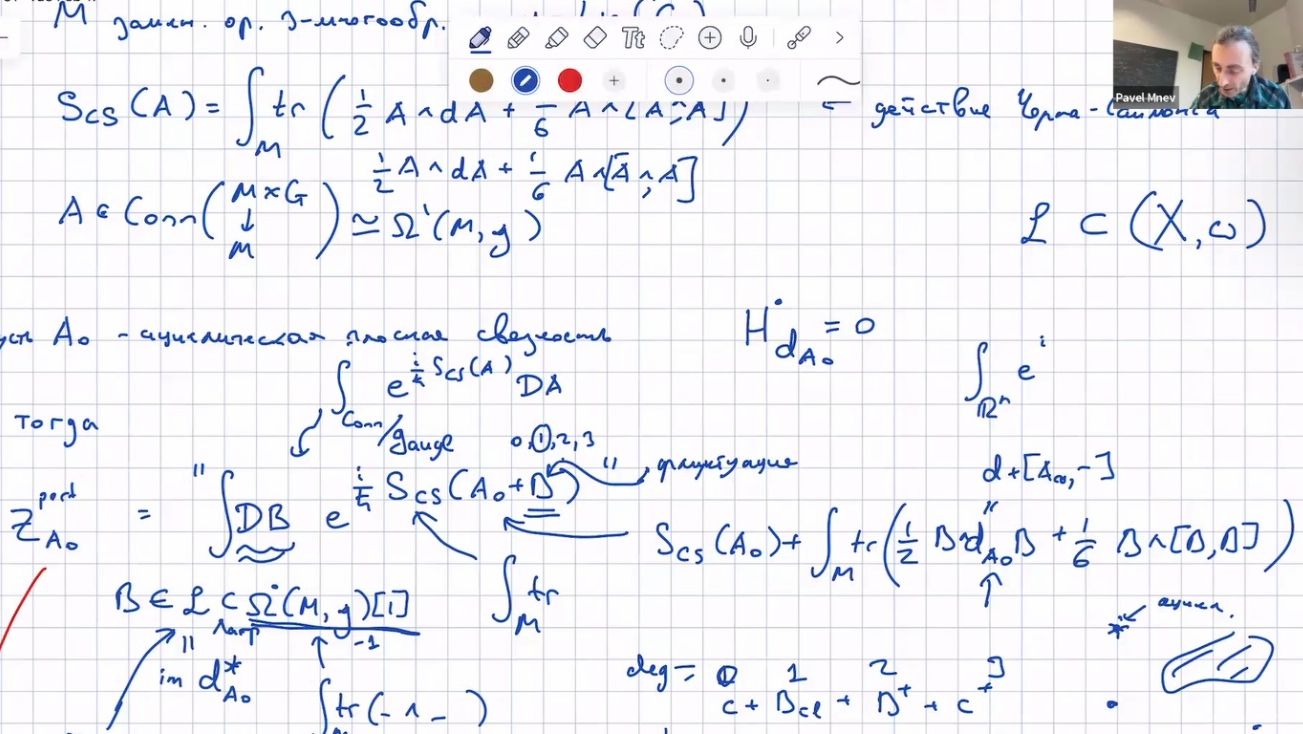 M замкн. ор. 3-многообр.
Tt
Pavel Mnev
S_CS (A) = ∫_M tr ( 1/2 A ∧ dA + 1/6 A ∧ [A ∧, A] ) ← действие Черна-Саймонса
1/2 A ∧ dA + 1/6 A ∧ [A ∧, A]
A ∈ Conn ( M × G ↓ M ) ≃ Ω^1 (M, g)
L ⊂ (X, ω)
A_0 - ациклическая плоская связность
H^•_{d_{A_0}} = 0
∫_{ℝ^n} e^i
∫_{Conn/gauge} e^{i/ħ S_CS(A)} DA
тогда
0, 1, 2, 3
флуктуация
d + [A_0, -]
Z^{pert}_{A_0} = "∫ DB e^{i/ħ S_CS (A_0 + B)} "
S_CS (A_0) + ∫_M tr ( 1/2 B ∧ d_{A_0} B + 1/6 B ∧ [B, B] )
B ∈ L ⊂ Ω^• (M, g) [1]
Лагр
-1
∫_M tr
ацикл.
im d*_{A_0}
∫ tr (- ∧ -)
deg = 0 1 2 3
c + B_cl + B^+ + c^+